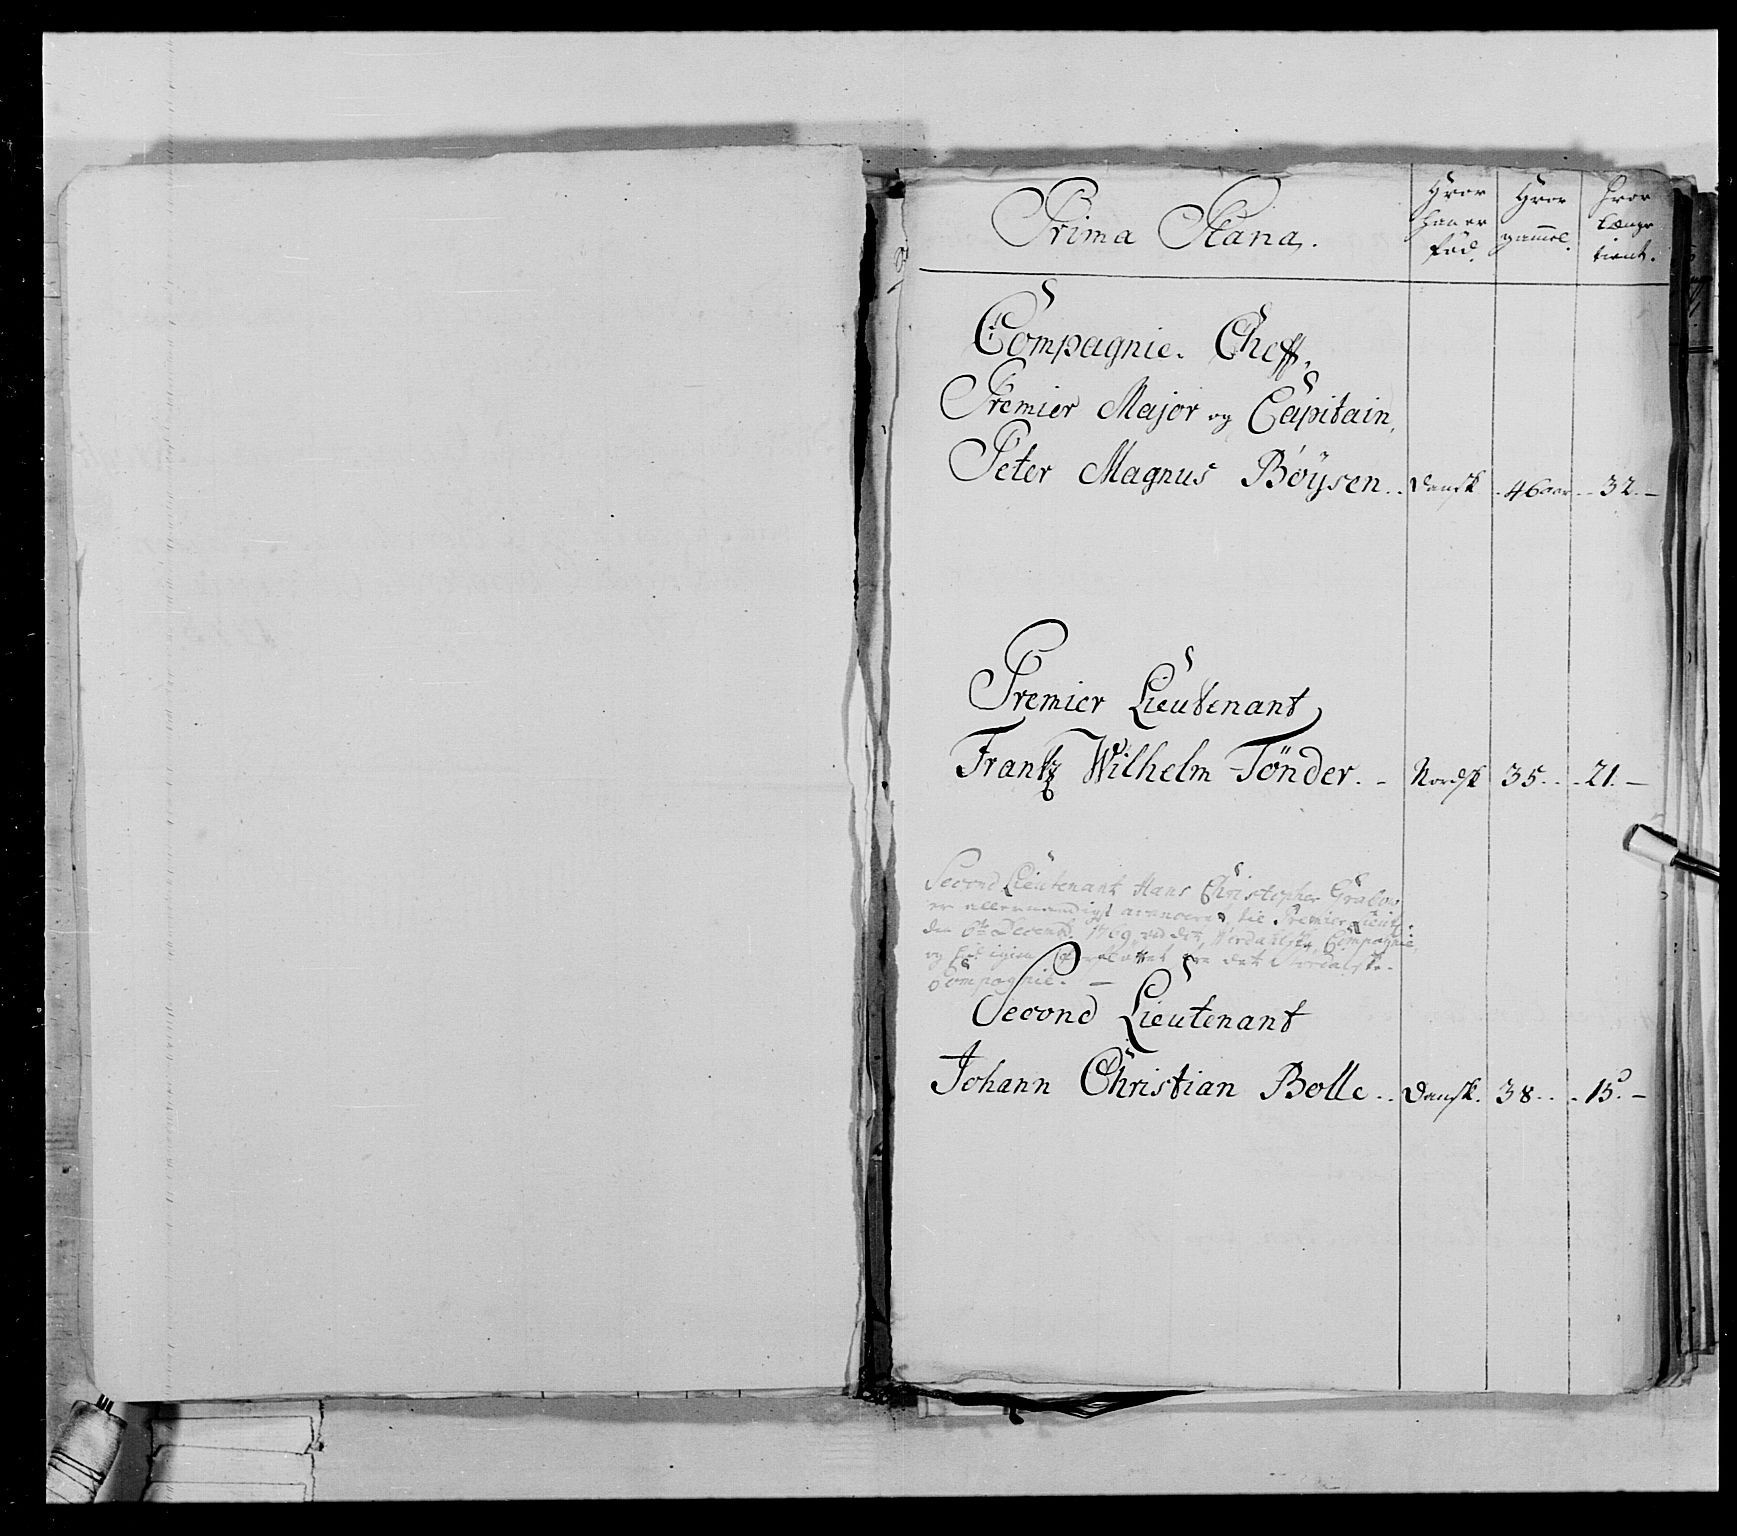 Prima Plana.
Hvor han er fød.
Hvor gammel.
Hvor længe tient.
Compagnie. Cheff,
Premier Major og Capitain,
Peter Magnus Böysen.. Dansk .46 aar ..32.—
Premier Lieutenant
Frantz Wilhelm Tönder. - Nordsk 35.. .21.—
Second Lieutenant Hans Christopher Grabow
er allernaadigst avanceret til Premier Lieut:
den 6te Decembr. 1769, ved det Werdalske Compagnie,
og igien fra det
Compagnie. —
Second Lieutenant
Johann Christian Bolle.. Dansk. 38.. .15.—